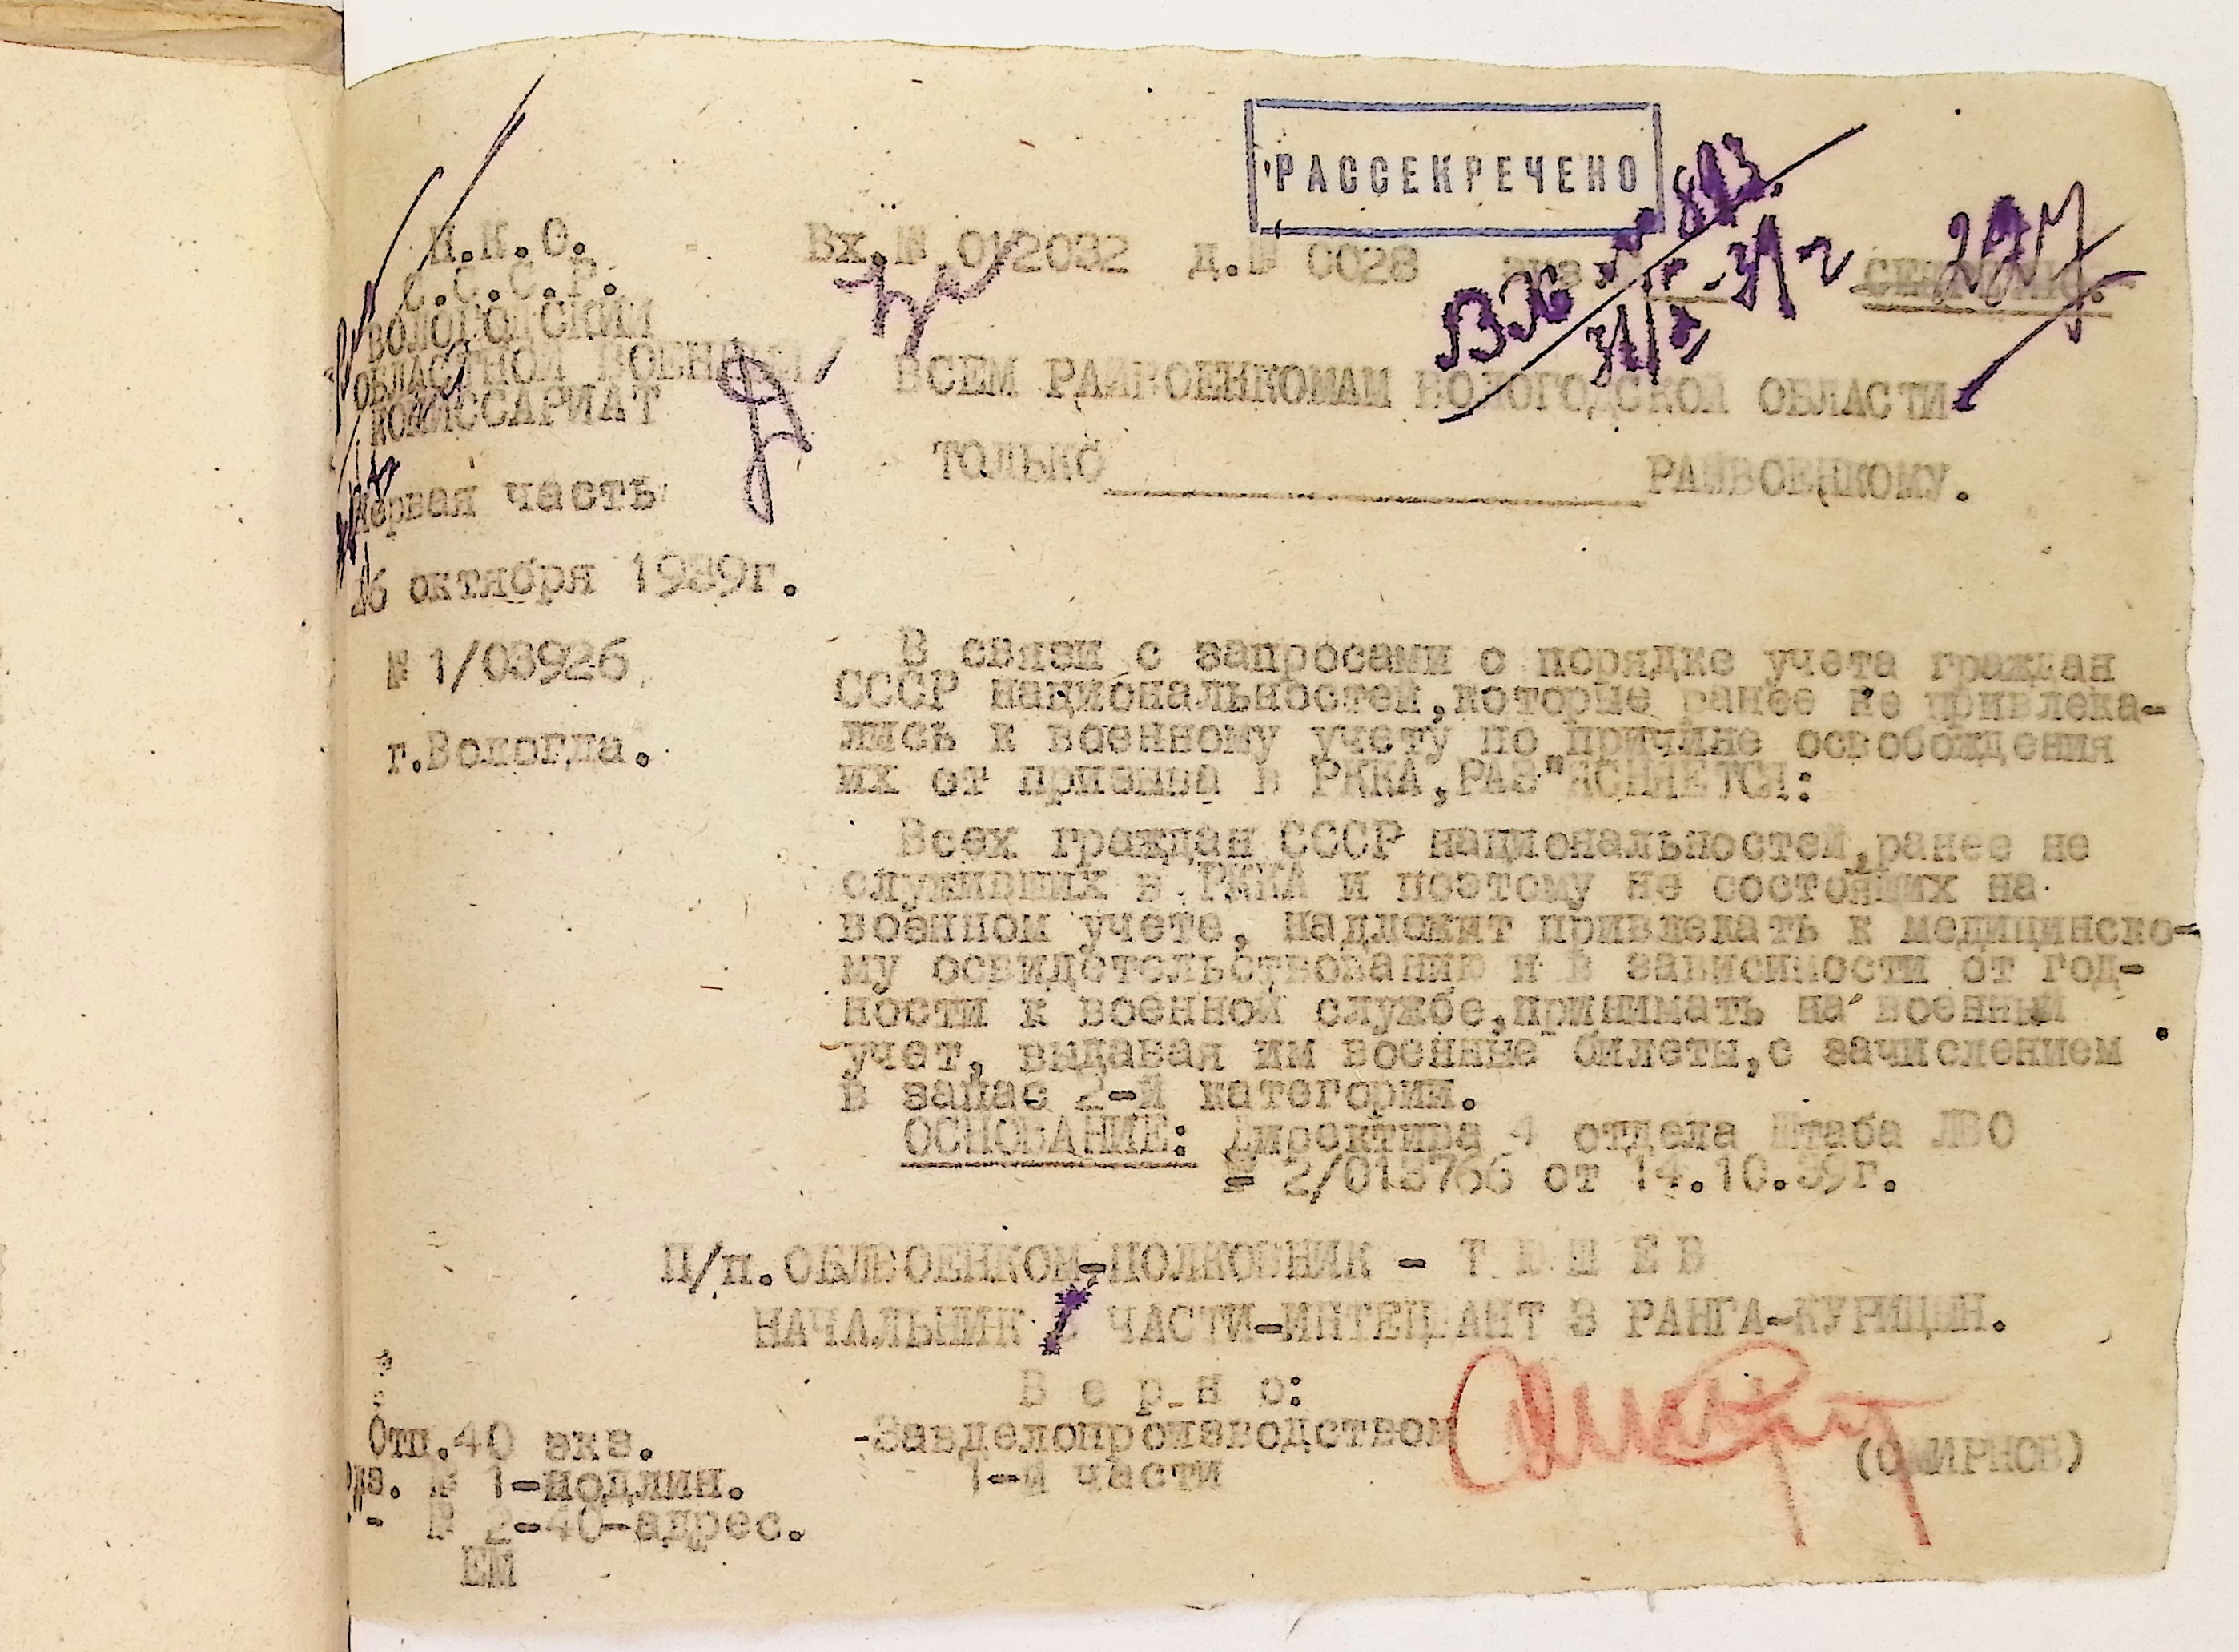 РАССЕКРЕЧЕНО
Н.К.О.
Вх.№ 0/2032 д.№ 0028 экз.
С.С.С.Р.
ВОЛОГОДСКИЙ
ОБЛАСТНОЙ ВОЕННЫЙ
КОМИССАРИАТ
Первая часть
16 октября 1939г.
№ 1/03926
г.Вологда.
227
ВСЕМ РАЙВОЕНКОМАМ ВОЛОГОДСКОЙ ОБЛАСТИ
ТОЛЬКО РАЙВОЕНКОМУ.
В связи с запросами о порядке учета граждан
СССР национальностей,которые ранее не привлека-
лись к военному учету по причине освобождения
их от призыва в РККА,РАЗ"ЯСНЯЕТСЯ:
Всех граждан СССР национальностей,ранее не
служивших в РККА и поэтому не состоящих на
военном учете, надлежит привлекать к медицинско-
му освидетельствованию и в зависимости от год-
ности к военной службе,принимать на военный
учет, выдавая им военные билеты,с зачислением
в запас 2-й категории.
ОСНОВАНИЕ: Директива 4 отдела Штаба ЛВО
№ 2/013766 от 14.10.39г.
П/п.ОБЛВОЕНКОМ-ПОЛКОВНИК -
НАЧАЛЬНИК ЧАСТИ-ИНТЕНДАНТ 3 РАНГА-КУРИЦЫН.
В е р н о:
-Завделопроизводством
1-й части
(СМИРНОВ)
Отп.40 экз.
№ 1-подлин.
-"- № 2-40-адрес.
ЕМ